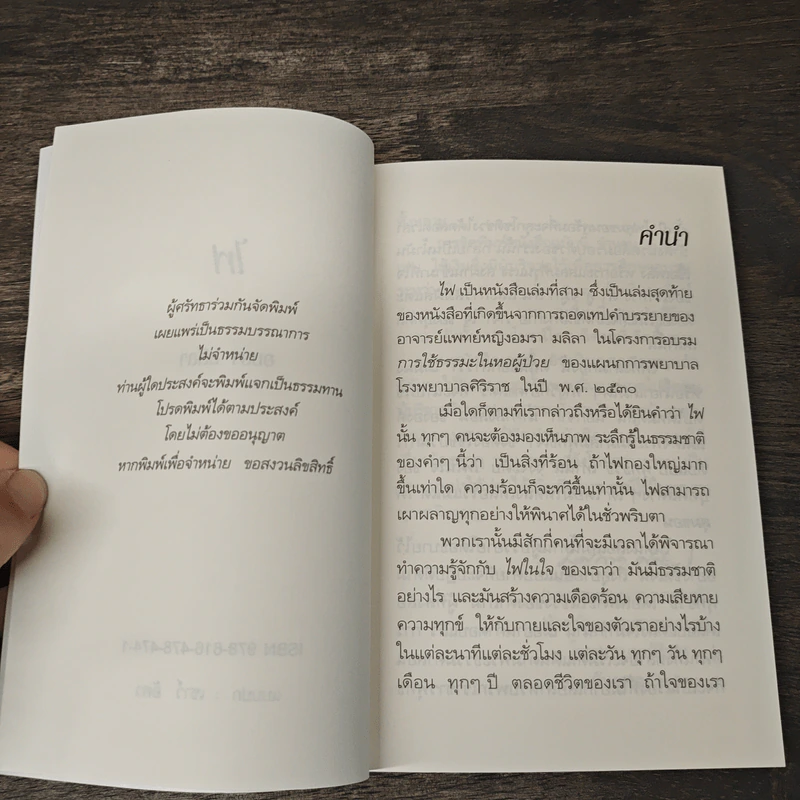 ผู้ศรัทธาร่วมกันจัดพิมพ์
เผยแพร่เป็นธรรมบรรณาการ
ไม่จำหน่าย
ท่านผู้ใดประสงค์จะพิมพ์แจกเป็นธรรมทาน
โปรดพิมพ์ได้ตามประสงค์
โดยไม่ต้องขออนุญาต
หากพิมพ์เพื่อจำหน่าย ขอสงวนลิขสิทธิ์
คำนำ
ไฟ เป็นหนังสือเล่มที่สาม ซึ่งเป็นเล่มสุดท้าย
ของหนังสือที่เกิดขึ้นจากการถอดเทปคำบรรยายของ
อาจารย์แพทย์หญิงอมรา มลิลา ในโครงการอบรม
การใช้ธรรมะในหอผู้ป่วย ของแผนกการพยาบาล
โรงพยาบาลศิริราช ในปี พ.ศ. ๒๕๓๐
เมื่อใดก็ตามที่เรากล่าวถึงหรือได้ยินคำว่า ไฟ
นั้น ทุกๆ คนจะต้องมองเห็นภาพ ระลึกรู้ในธรรมชาติ
ของคำๆ นี้ว่า เป็นสิ่งที่ร้อน ถ้าไฟกองใหญ่มาก
ขึ้นเท่าใด ความร้อนก็จะทวีขึ้นเท่านั้น ไฟสามารถ
เผาผลาญทุกอย่างให้พินาศได้ในชั่วพริบตา
พวกเรานั้นมีสักกี่คนที่จะมีเวลาได้พิจารณา
ทำความรู้จักกับ ไฟในใจ ของเราว่า มันมีธรรมชาติ
อย่างไร และมันสร้างความเดือดร้อน ความเสียหาย
ความทุกข์ ให้กับกายและใจของตัวเราอย่างไรบ้าง
ในแต่ละนาทีแต่ละชั่วโมง แต่ละวัน ทุกๆ วัน ทุกๆ
เดือน ทุกๆ ปี ตลอดชีวิตของเรา ถ้าใจของเรา